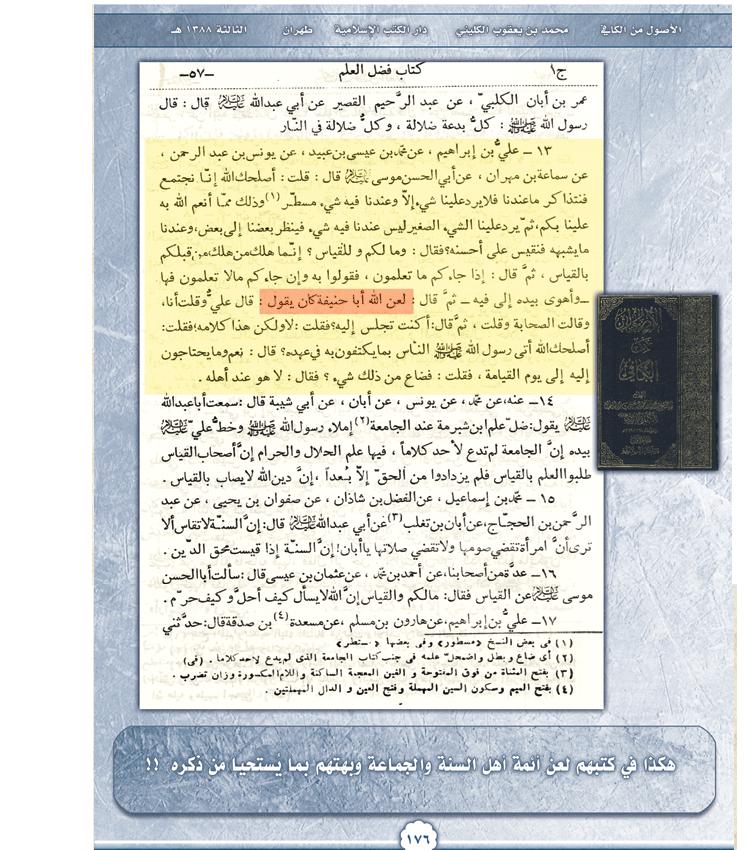 الأصول من الكافي محمد بن يعقوب الكليني دار الكتب الإسلامية طهران الثالثة ١٣٨٨ هـ
ج١ كتاب فضل العلم ـ٥٧ـ
عمر بن أبان الكلبيّ ، عن عبد الرَّحيم القصير عن أبي عبدالله عليه السلام قال : قال
رسول الله صلى الله عليه وآله : كلُّ بدعة ضلالة ، وكلُّ ضلالة في النّار
١٣ ـ عليُّ بن إبراهيم ، عن محمد بن عيسى بن عبيد ، عن يونس بن عبد الرحمن ،
عن سماعة بن مهران ، عن أبي الحسن موسى عليه السلام قال : قلت : أصلحك الله إنّا نجتمع
فنتذاكر ما عندنا فلا يرد علينا شيء إلّا وعندنا فيه شيء مسطّر (١) وذلك ممّا أنعم الله به
علينا بكم، ثمّ يرد علينا الشيء الصغير ليس عندنا فيه شيء فينظر بعضنا إلى بعض، وعندنا
ما يشبهه فنقيس على أحسنه؟ فقال : وما لكم وللقياس ؟ إنّما هلك من هلك من قبلكم
بالقياس ، ثمَّ قال : إذا جاءكم ما تعلمون ، فقولوا به وإن جاءكم مالا تعلمون فها
ـ وأهوى بيده إلى فيه ـ ثمَّ قال : لعن الله أبا حنيفة كان يقول : قال عليٌّ وقلت أنا،
وقالت الصحابة وقلت ، ثمَّ قال: أكنت تجلس إليه؟ فقلت : لا ولكن هذا كلامه؛ فقلت:
أصلحك الله أتى رسول الله صلى الله عليه وآله النّاس بما يكتفون به في عهده؟ قال : نعم وما يحتاجون
إليه إلى يوم القيامة ، فقلت : فضاع من ذلك شيء ؟ فقال : لا هو عند أهله .
١٤ـ عنه، عن محمد ، عن يونس ، عن أبان ، عن أبي شيبة قال : سمعت أبا عبدالله
عليه السلام يقول: ضلّ علم ابن شبرمة عند الجامعة (٢) إملاء رسول الله صلى الله عليه وآله وخطّ عليّ عليه السلام
بيده إنَّ الجامعة لم تدع لأحد كلاماً ، فيها علم الحلال والحرام إنَّ أصحاب القياس
طلبوا العلم بالقياس فلم يزدادوا من الحقّ إلّا بُعداً ، إنَّ دين الله لا يصاب بالقياس .
١٥ ـ محمد بن إسماعيل ، عن الفضل بن شاذان ، عن صفوان بن يحيى ، عن عبد
الرَّحمن بن الحجّاج، عن أبان بن تغلب (٣) عن أبي عبدالله عليه السلام قال: إنَّ السنّة لا تقاس ألا
ترى أنَّ امرأة تقضي صومها ولا تقضي صلاتها يا أبان! إنَّ السنّة إذا قيست محق الدّين .
١٦ ـ عدَّة من أصحابنا، عن أحمد بن محمد ، عن عثمان بن عيسى قال: سألت أبا الحسن
موسى عليه السلام عن القياس فقال: مالكم والقياس إنَّ الله لا يسأل كيف أحلَّ وكيف حرّم .
١٧ ـ عليُّ بن إبراهيم، عن هارون بن مسلم ، عن مسعدة (٤) بن صدقة قال: حدَّثني
(١) فى بعض النسخ «مسطور» وفى بعضها
(٢) أى ضاع وبطل واضمحلّ علمه فى جنب كتاب الجامعة الذى لم يدع لاحد كلاما . (فى)
(٣) بفتح المثناة من فوق المفتوحة و الغين المعجمة الساكنة واللام المكسورة وزان تضرب .
(٤) بفتح الميم وسكون السين المهملة وفتح العين و الدال المهملتين .
هكذا في كتبهم لعن أئمة أهل السنة والجماعة وبهتهم بما يستحيا من ذكره !!
١٧٦